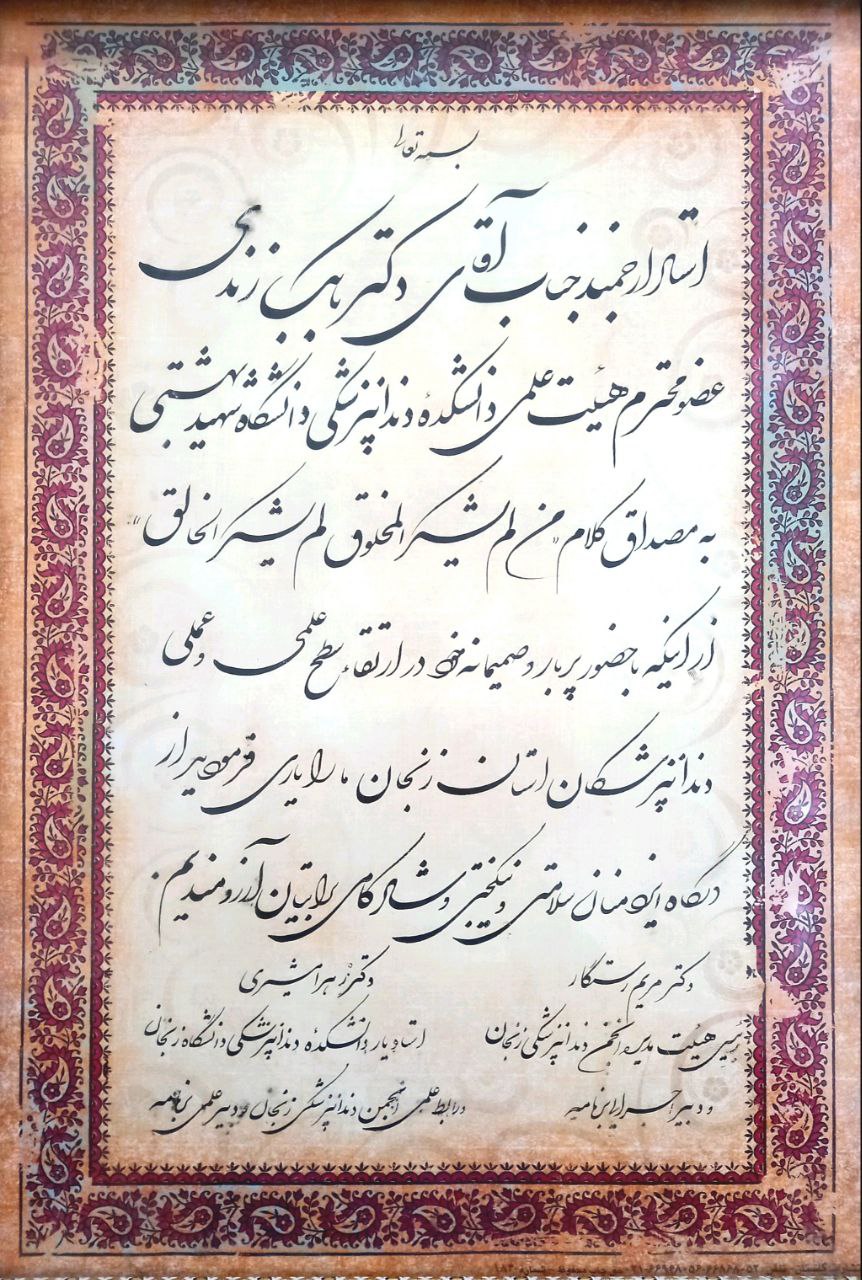 بسمه تعالی
استاد ارجمند جناب آقای دکتر بابک زندی
عضو محترم هیئت علمی دانشکدهٔ دندانپزشکی دانشگاه شهید بهشتی
به مصداق کلام «من لم یشکر المخلوق لم یشکر الخالق»
از اینکه با حضور پربار و صمیمانه خود در ارتقاء سطح علمی و عملی
دندانپزشکان استان زنجان ما را یاری فرمودید از
درگاه ایزد منان سلامتی و نیکبختی و شادکامی برایتان آرزومندیم.
دکتر مریم رستگار
رئیس هیئت مدیره انجمن دندانپزشکی زنجان
و دبیر اجرایی برنامه
دکتر زهرا
استادیار دانشکدهٔ دندانپزشکی دانشگاه زنجان
رابط علمی انجمن دندانپزشکی زنجان و دبیر علمی برنامه